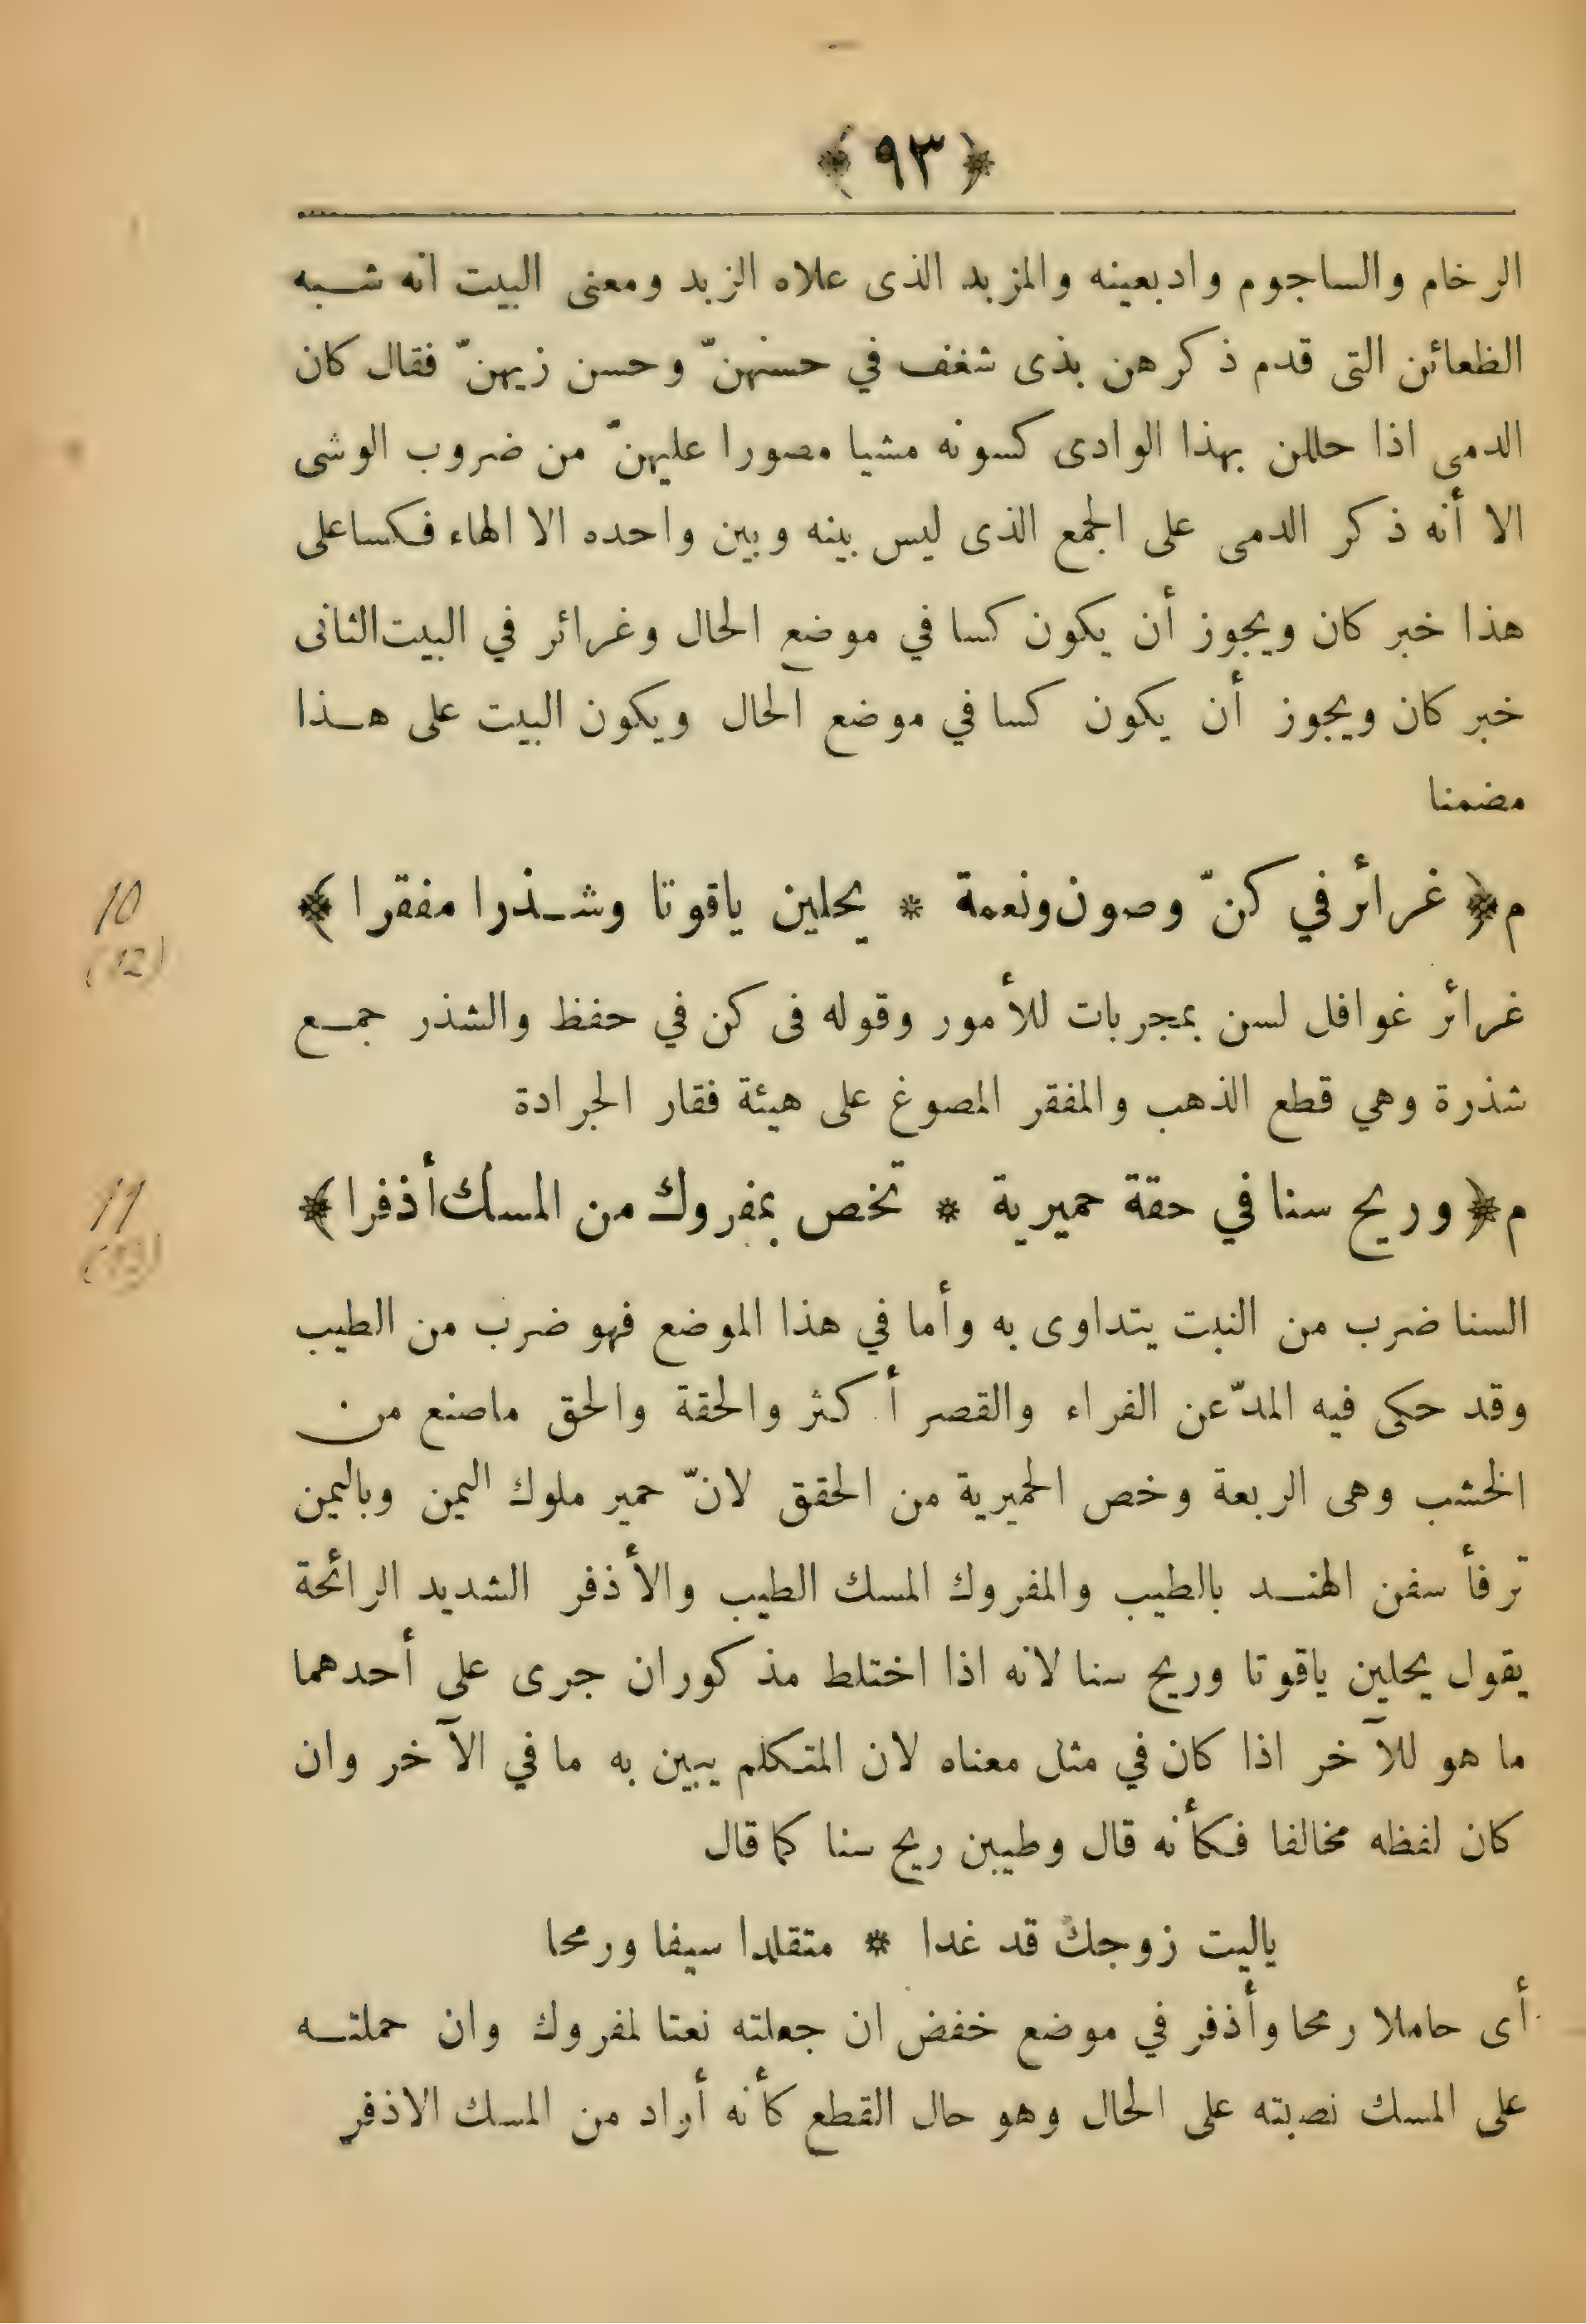 ﴿ ٩٣ ﴾
الرخام والساجوم وادبعينه والمزبد الذى علاه الزبد ومعنى البيت انه شبه
الظعائن التى قدم ذكرهن بذى شغف في حسنهنّ وحسن زيهنّ فقال كان
الدمى اذا حللن بهذا الوادى كسونه مشيا مصورا عليهنّ من ضروب الوشى
الا أنه ذكر الدمى على الجمع الذى ليس بينه وبين واحده الا الهاء فكسا على
هذا خبر كان ويجوز أن يكون كسا في موضع الحال وغرائر في البيت الثانى
خبر كان ويجوز أن يكون كسا في موضع الحال ويكون البيت على هذا
مضمنا
م﴿ غرائر في كنّ وصون ونعمة * يحلين ياقوتا وشذرا مفقرا ﴾
10
(12)
غرائر غوافل لسن بمجربات للأمور وقوله فى كن في حفظ والشذر جمع
شذرة وهي قطع الذهب والمفقر المصوغ على هيئة فقار الجرادة
م﴿ وريح سنا في حقة حميرية * تخص بمفروك من المسك أذفرا ﴾
11
(13)
السنا ضرب من النبت يتداوى به وأما في هذا الموضع فهو ضرب من الطيب
وقد حكى فيه المدّ عن الفراء والقصر أكثر والحقة والحق ماصنع من
الخشب وهى الربعة وخص الحميرية من الحقق لانّ حمير ملوك اليمن وباليمن
ترفأ سفن الهند بالطيب والمفروك المسك الطيب والأذفر الشديد الرائحة
يقول يحلين ياقوتا وريح سنا لانه اذا اختلط مذكوران جرى على أحدهما
ما هو للآخر اذا كان في مثل معناه لان المتكلم يبين به ما في الآخر وان
كان لفظه مخالفا فكأنه قال وطيبن ريح سنا كما قال
ياليت زوجك قد غدا * متقلدا سيفا ورمحا
أى حاملا رمحا وأذفر في موضع خفض ان جعلته نعتا لمفروك وان حملته
على المسك نصبته على الحال وهو حال القطع كأنه أراد من المسك الاذفر